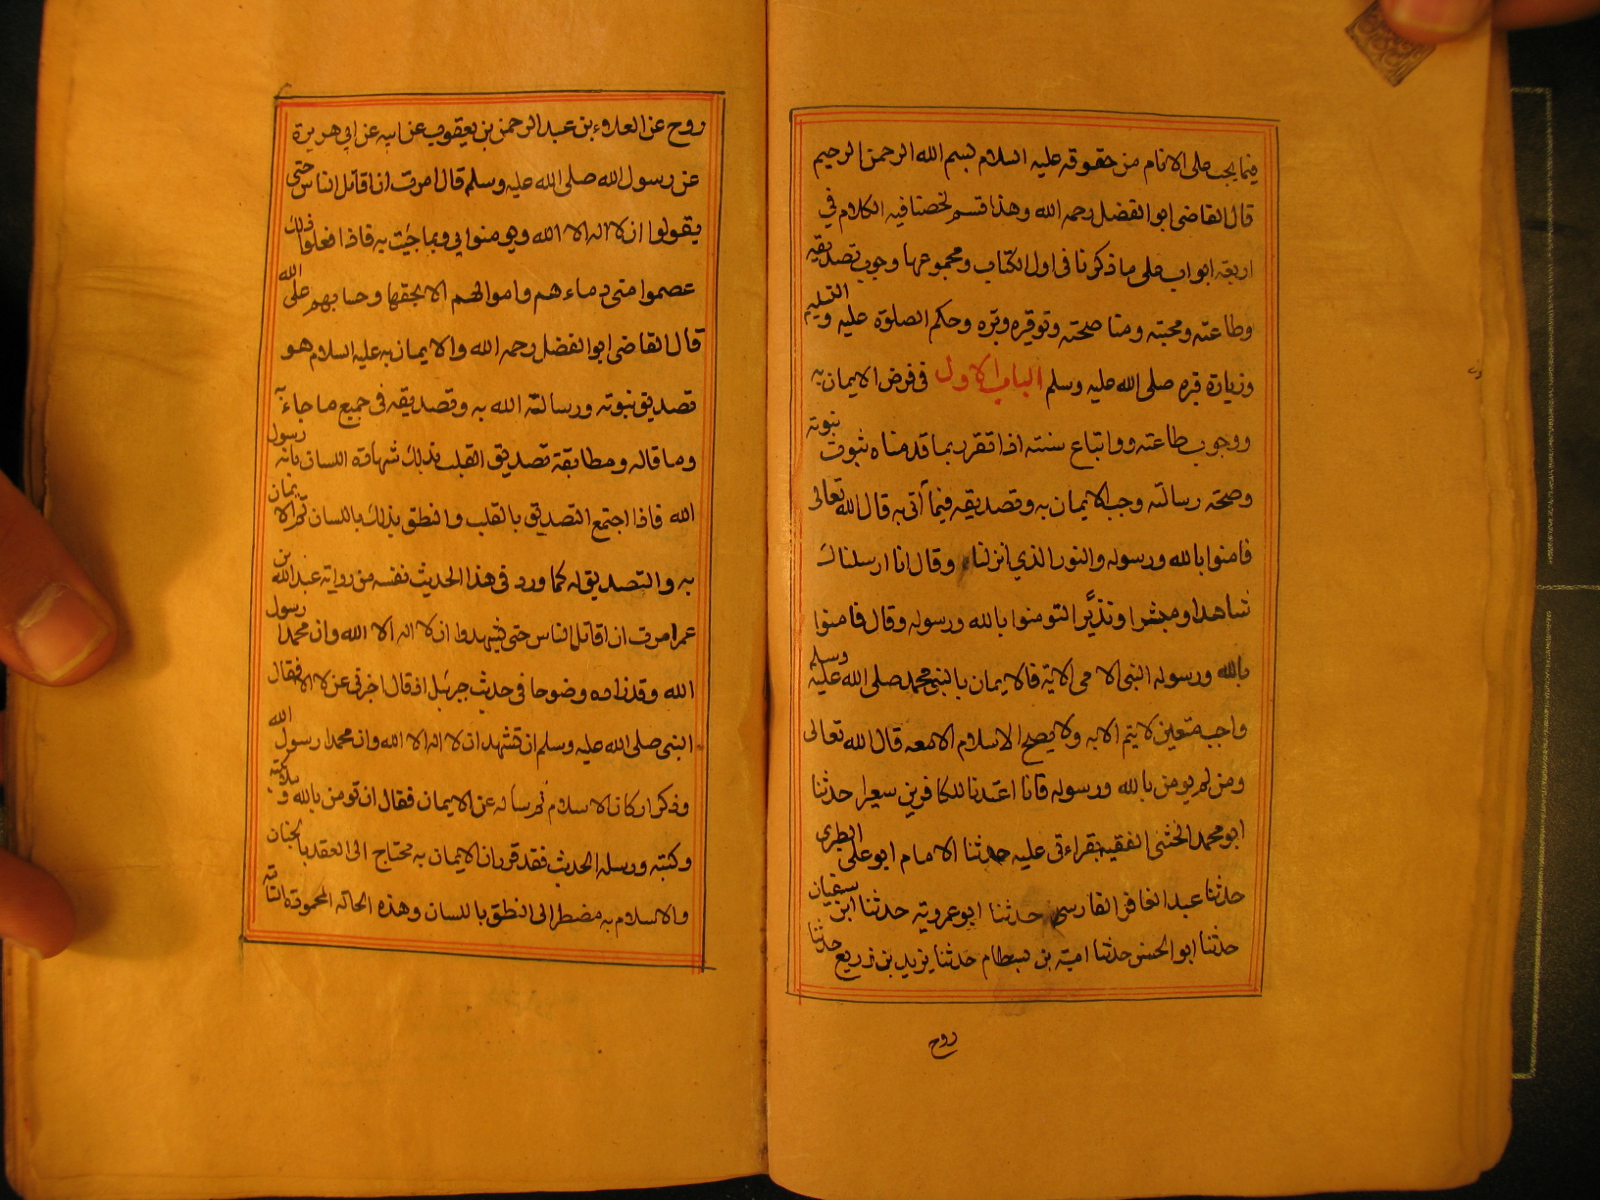 فيما يجب على الانام من حقوقه عليه السلام بسم الله الرحمن الرحيم
قال القاضى ابو الفضل رحمه الله وهذا قسم لخصنا فيه الكلام في
اربعة ابواب على ما ذكرنا فى اول الكتاب ومجموعها وجوب تصديقه
وطاعته ومحبته ومناصحته وتوقيره وبره وحكم الصلوة عليه والتسليم
وزيارة قبره صلى الله عليه وسلم الباب الاول فى فرض الايمان به
ووجوب طاعته وواتباع سنته اذا تقرر بما قدمناه ثبوت نبوته
وصحة رسالته وجب الايمان به وتصديقه فيما أتى به قال الله تعالى
فامنوا بالله ورسوله والنور الذي انزلنا وقال انا ارسلناك
شاهدا ومبشرا ونذيرًا لتومنوا بالله ورسوله وقال فامنوا
بالله ورسوله النبى الامى الاية فالايمان بالنبى محمد صلى الله عليه وسلم
واجب متعين لا يتم الا به ولا يصح الاسلام الا معه قال الله تعالى
ومن لم يومن بالله ورسوله فانا اعتدنا للكافرين سعيرا حدثنا
ابو محمد الخشنى الفقيه بقراءتى عليه حدثنا الامام ابو على الطبرى
حدثنا عبد الغافر الفارسى حدثنا ابو عمرويه حدثنا ابن سفيان
حدثنا ابو الحسن حدثنا امية بن بسطام حدثنا يزيد بن زريع حدثنا
روح
روح عن العلاء بن عبد الرحمن بن يعقوب عن ابيه عن ابي هريرة
عن رسول الله صلى الله عليه وسلم قال امرت ان اقاتل الناس حتى
يقولوا ان لا اله الا الله ويومنوا بي وبما جئت به فاذا فعلوا ذلك
عصموا منى دماءهم واموالهم الا بحقها وحسابهم على الله
قال القاضى ابو الفضل رحمه الله والايمان به عليه السلام هو
تصديق نبوته ورسالة الله به وتصديقه فى جميع ما جاء به
وما قاله ومطابقة تصديق القلب بذلك شهادة اللسان بانه رسول
الله فاذا اجتمع التصديق بالقلب والنطق بذلك باللسان تم الايمان
به والتصديق له كما ورد فى هذا الحديث نفسه من رواية عبد الله بن
عمر امرت ان اقاتل الناس حتى يشهدوا ان لا اله الا الله وان محمدا رسول
الله وقد زاده وضوحا فى حديث جبرئيل اذ قال اخبرنى عن الاسلام فقال
النبى صلى الله عليه وسلم ان تشهد ان لا اله الا الله وان محمدا رسول الله
وذكر اركان الاسلام ثم سأله عن الايمان فقال ان تومن بالله وملائكته
وكتبه ورسله الحديث فقد قرر ان الايمان به محتاج الى العقد بالجنان
والاسلام به مضطر الى النطق باللسان وهذه الحالة المحمودة التامة